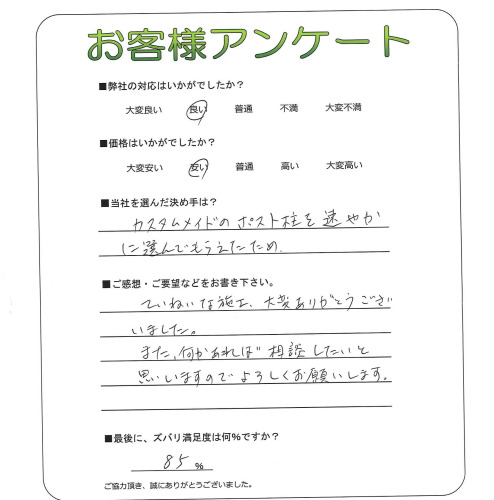 お客様アンケート
■弊社の対応はいかがでしたか?
大変良い 良い 普通 不満 大変不満
■価格はいかがでしたか?
大変安い 安い 普通 高い 大変高い
■当社を選んだ決め手は?
カスタムメイドのポスト柱を速やか
に選んでもらえたため.
■ご感想・ご要望などをお書き下さい。
ていねいな施工、大変ありがとうござ
いました。
また、何かあれば相談したいと
思いますのでよろしくお願いします。
■最後に、ズバリ満足度は何%ですか?
85 %
ご協力頂き、誠にありがとうございました。